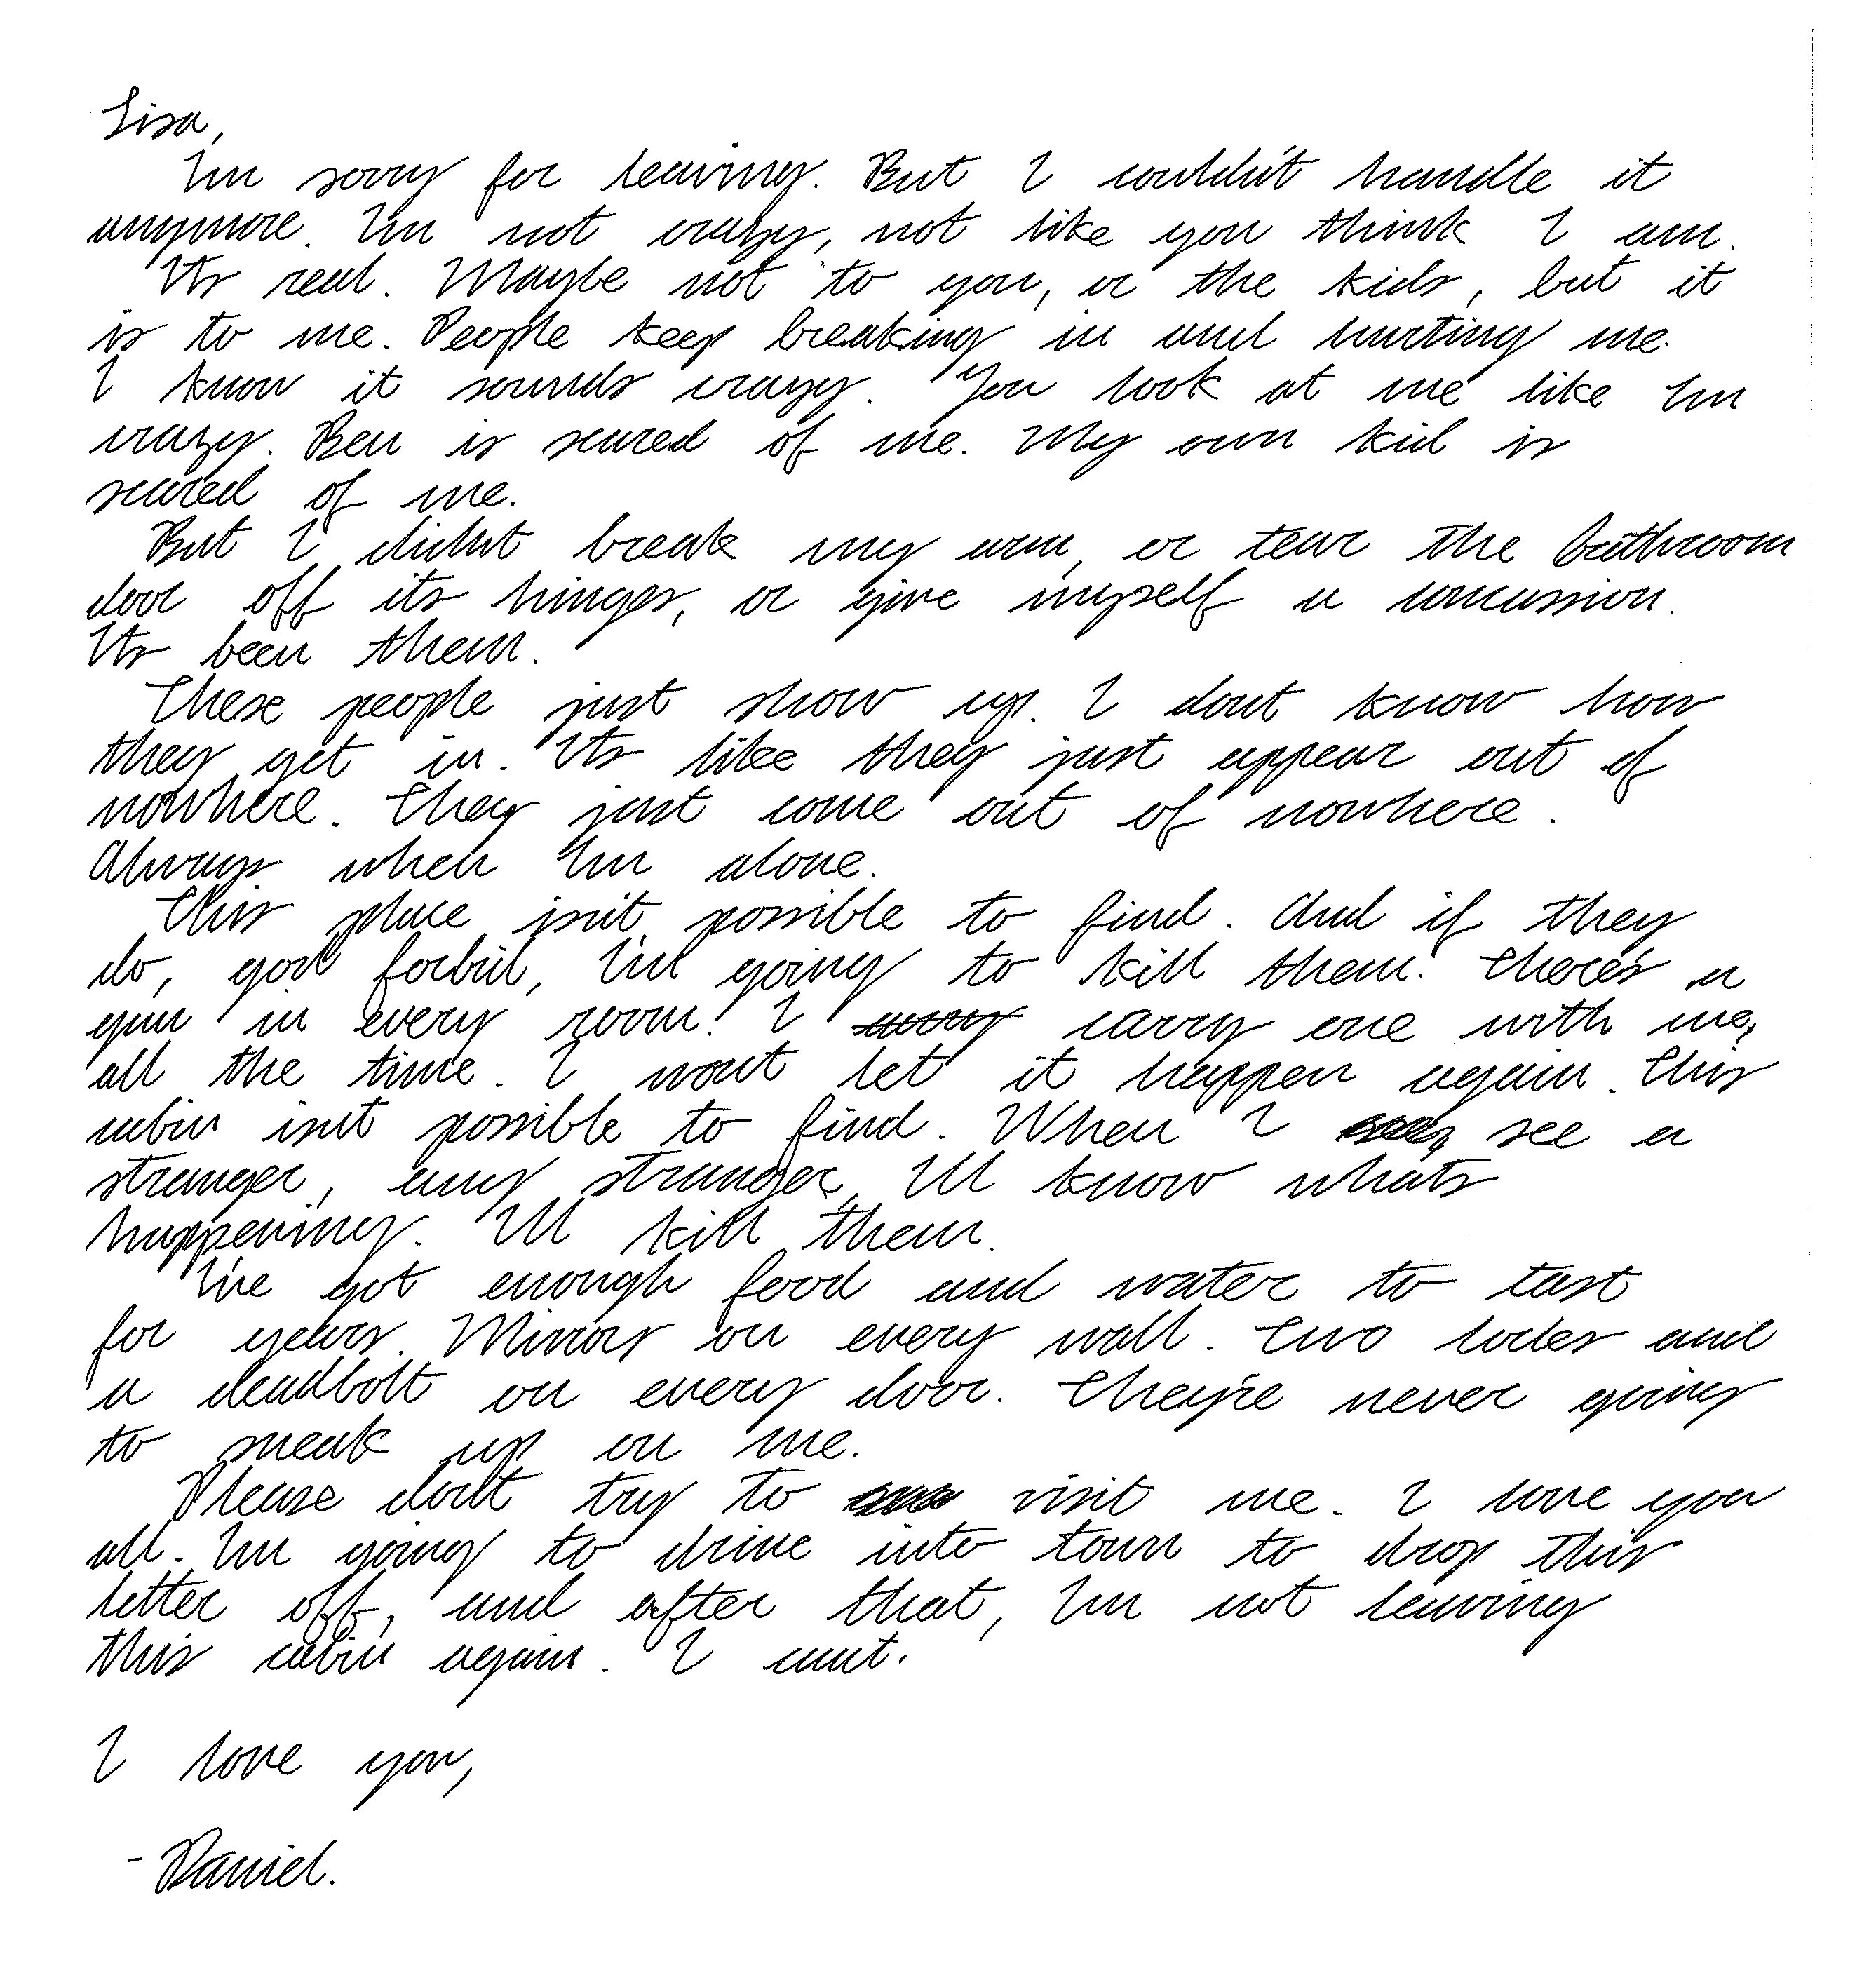 Lisa,
I'm sorry for leaving. But I couldn't handle it
anymore. I'm not crazy, not like you think I am.
It's real. Maybe not to you, or the kids, but it
is to me. People keep breaking in and hurting me.
I know it sounds crazy. You look at me like I'm
crazy. Ben is scared of me. My own kid is
scared of me.
But I didn't break my arm, or tear the bathroom
door off its hinges, or give myself a concussion.
It's been them.
These people just show up. I don't know how
they get in. It's like they just appear out of
nowhere. They just come out of nowhere.
Always when I'm alone.
This place isn't possible to find. And if they
do, god forbid, I'm going to kill them. There's a
gun in every room. I carry one with me,
all the time. I won't let it happen again. This
cabin isn't possible to find. When I see a
stranger, any stranger, I'll know what's
happening. I'll kill them.
I've got enough food and water to last
for years. Mirrors on every wall. Two locks and
a deadbolt on every door. They're never going
to sneak up on me.
Please don't try to visit me. I love you
all. I'm going to drive into town to drop this
letter off, and after that, I'm not leaving
this cabin again. I can't.
I love you,
- Daniel.